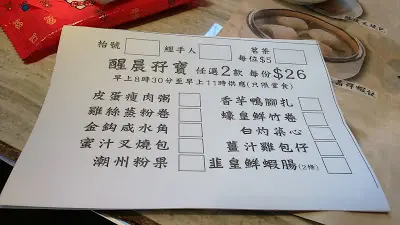 枱號 經手人 茗茶
每位$5
醒晨孖寶 任選2款 每份$26
早上8時30分至早上11時供應(只限堂食)
皮蛋瘦肉粥 香芋鴨腳扎
雞絲蒸粉卷 蠔皇鮮竹卷
金鈎咸水角 白灼菜心
蜜汁叉燒包 薑汁雞包仔
潮州粉果 韮皇鮮蝦腸(2條)